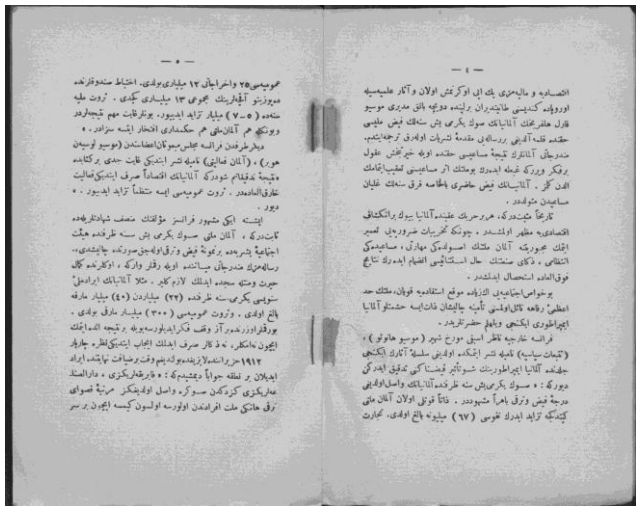 — ٤ —
اقتصاديه و ماليه‌مزى پك ايى اوكرنمش اولان و آثار علميه‌سيله
اوروپاده كنديسنى طانيتديران برلينده دويچه بانق مديرى موسيو
قارل هلفريخك آلمانيانك صوك يكرمى بش سنه‌لك فيض مليسى
حقنده قلمه آلدينى رساله‌يى مقدمهٔ نشريات اوله‌رق ترجمه ايتدم.
مندرجاتى آلمانلرك نتيجهٔ مساعيسى حقنده اويله خبر بخش عقول
برفكر ويرركه غبطه ايده‌رك بوملتك اثر مساعيسنى تعقيب ايتمامك
الدن كلمز . آلمانيانك فيض حاضرى بالخاصه فرق سنه‌لك غليان
مساعيدن متولددر .
تاريخاً مثبت‌دركه، هر حربك عقبنده آلمانيا بيوك برانكشافى
اقتصادى‌يه مظهر اولمشدر . چونكه تخريبات ضروريه‌يى تعمير
ايتمك مجبوريتنه آلمان ملتنك اصولده‌كى مهارتى ، مساعيده‌كى
انتظامى ، ذكاى صنعتك حال استثنائيسى انضمام ايده‌رك نتايج
فوق العاده استحصال ايدلمشدر .
بوخواص اجتماعيه‌يى اك زياده موقع استفاده‌يه قويان، ملتك حد
اعظمى رفاهه نائل اولمسنى تأمينه چاليشان ذات ايسه حشمتلو آلمانيا
ايمپراطورى ايكنجى ويلهلم حضرتلريدر .
فرانسه خارجيه ناظر اسبقى مورخ شهير (موسيو هانوتو) ،
(تتبعات سياسيه) ناميله نشر ايتمكده اولدينى سلسلهٔ آثارك ايكنجى
جلدنده آلمانيا ايمپراطورينك شؤ تأثير فيضناكنى تدقيق ايدركن
ديوركه : « صوك يكرمى بش سنه ظرفنده آلمانيانك واصل اولدينى
درجهٔ فيض وترقى باهراً مشهوددر . ذاتاً قوتلى اولان آلمان ملتى
كيتدكجه تزايد ايده‌رك نفوسى (٦٧) ميليونه بالغ اولدى. تجارت
— ٥ —
عموميه‌سى ٢٥ واخراجاتى ١٢ ميليارى بولدى. احتياط صندوقلرنده
ده‌پوزيتو آقچه‌لرينك مجموعى ١٣ ميليارى كچدى . ثروت مليه
سنه‌ده (٥-٧) ميليار تزايد ايديبور. بونلر غايت مهم نتيجه‌لردر
وبونكله هم آلمان ملتى هم حكمدارى افتخار ايتسه سزادر. »
ديكر طرفدن فرانسه مجلس مبعوثان اعضاسندن (موسيو لوسيه‌ن
هوبر) ، (آلمان فعاليتى) ناميله نشر ايتديكى غايت جدى بركتابده
« نتيجهٔ تدقيقاتم شودركه آلمانيانك اقتصاداً صرف ايتديكى فعاليت
خارق العاده‌در . ثروت عموميه‌سى ايسه منتظماً تزايد ايديبور . »
ديور .
ايشته ايكى مشهور فرانسز مؤلفنك منصف شهادتلريله‌ده
ثابت‌دركه ، آلمان ملتى صوك يكرمى بش سنه ظرفنده هيئت
اجتماعيهٔ بشريه‌ده برنمونهٔ فيض وترقى اوله‌جق صورتده چاليشدى.
رساله‌مزك مندرجاتى مياننده اويله رقملر واركه ، اوكلرنده كمال
حيرت ومنتله سجده ايدلمك لازم كلير . مثلا آلمانيانك ايراد ملئ
سنويسى يكرمى سنه ظرفنده (٢٢) ميلياردن (٤٠) ميليار مارقه
بالغ اولدى . وثروت عموميه‌سى (٣٠٠) ميليار مارقى بولدى .
بورقملر اوزرنده‌بر آز وقف فكر ايديلورسه بويله برنتيجه الده ايتمك
ايچون نه‌امكلر، نه ذكالر صرف ايدلمك ايجاب ايتديكى نظره چارپار
١٩١٣ حزيراننده لايپزيغده بولنديغم وقت برضيافت نهايتنده ايراد
ايديلان بر نطقه جواباً ديمشيدم كه : « فابريقه‌لريكزى ، دار الصنا-
عه‌لريكزى كزدكدن صوكره واصل اولديغكز مرتبهٔ قصواى
ترقى هانكى ملت افرادندن اولورسه اولسون كيمسه ايچون بر سر